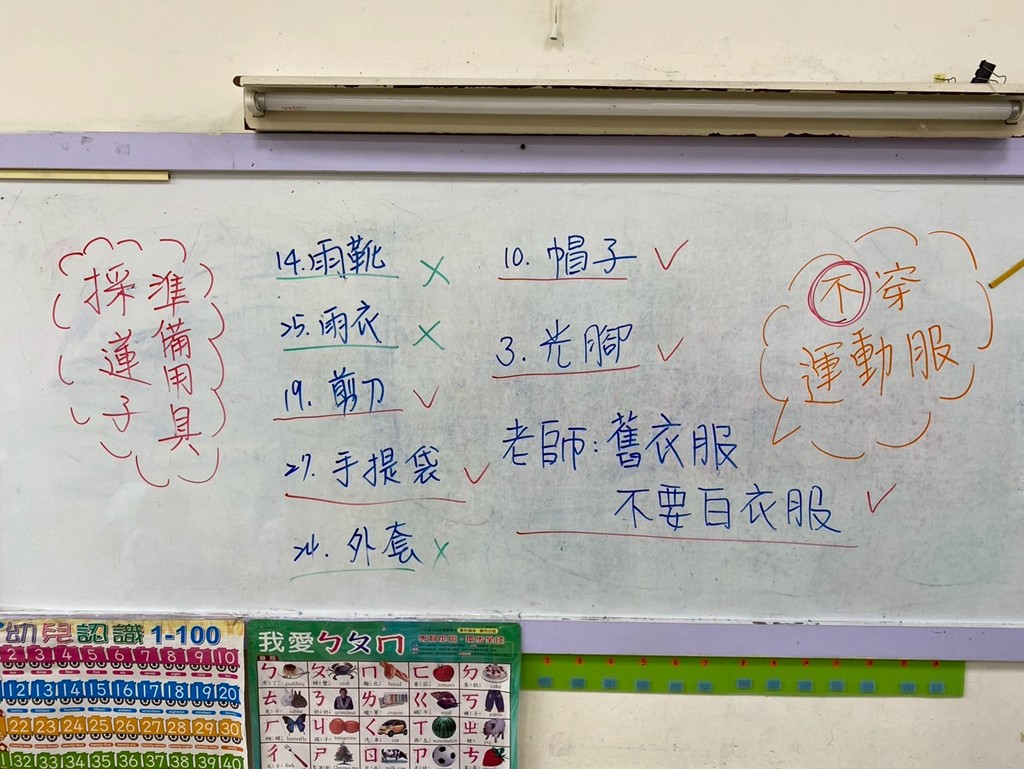 準備用具
採蓮子
14.雨靴 ×
25.雨衣 ×
19.剪刀 ✓
27.手提袋 ✓
24.外套 ×
10.帽子 ✓
3.光腳 ✓
老師:舊衣服
不要白衣服 ✓
不穿
運動服
幼兒認識1-100
2 3 4 5 6 7 8 9 10
12 13 14 15 16 17 18 19 20
22 23 24 25 26 27 28 29 30
32 33 34 35 36 37 38 39 40
我愛ㄅㄆㄇ
ㄅ ㄆ ㄇ ㄈ ㄉ
ㄊ ㄋ ㄌ ㄍ ㄎ
ㄏ ㄐ ㄑ ㄒ ㄓ
ㄔ ㄕ ㄖ ㄗ ㄘ